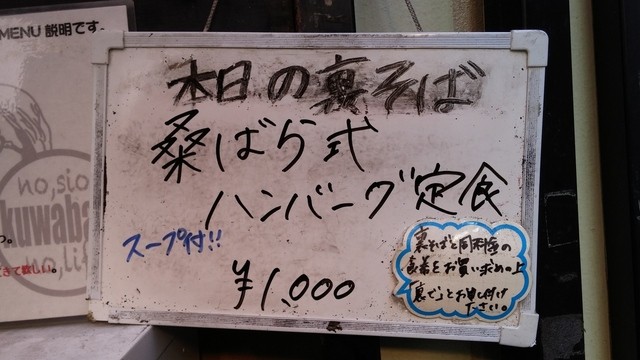 MENU 説明です
本日の裏そば
桑ばら式
ハンバーグ定食
スープ付!!
¥1,000
裏そばと同料金の
食券をお買い求めの上
「裏で」とお申し付け
ださい。
no,sio
kuwaba
no,li